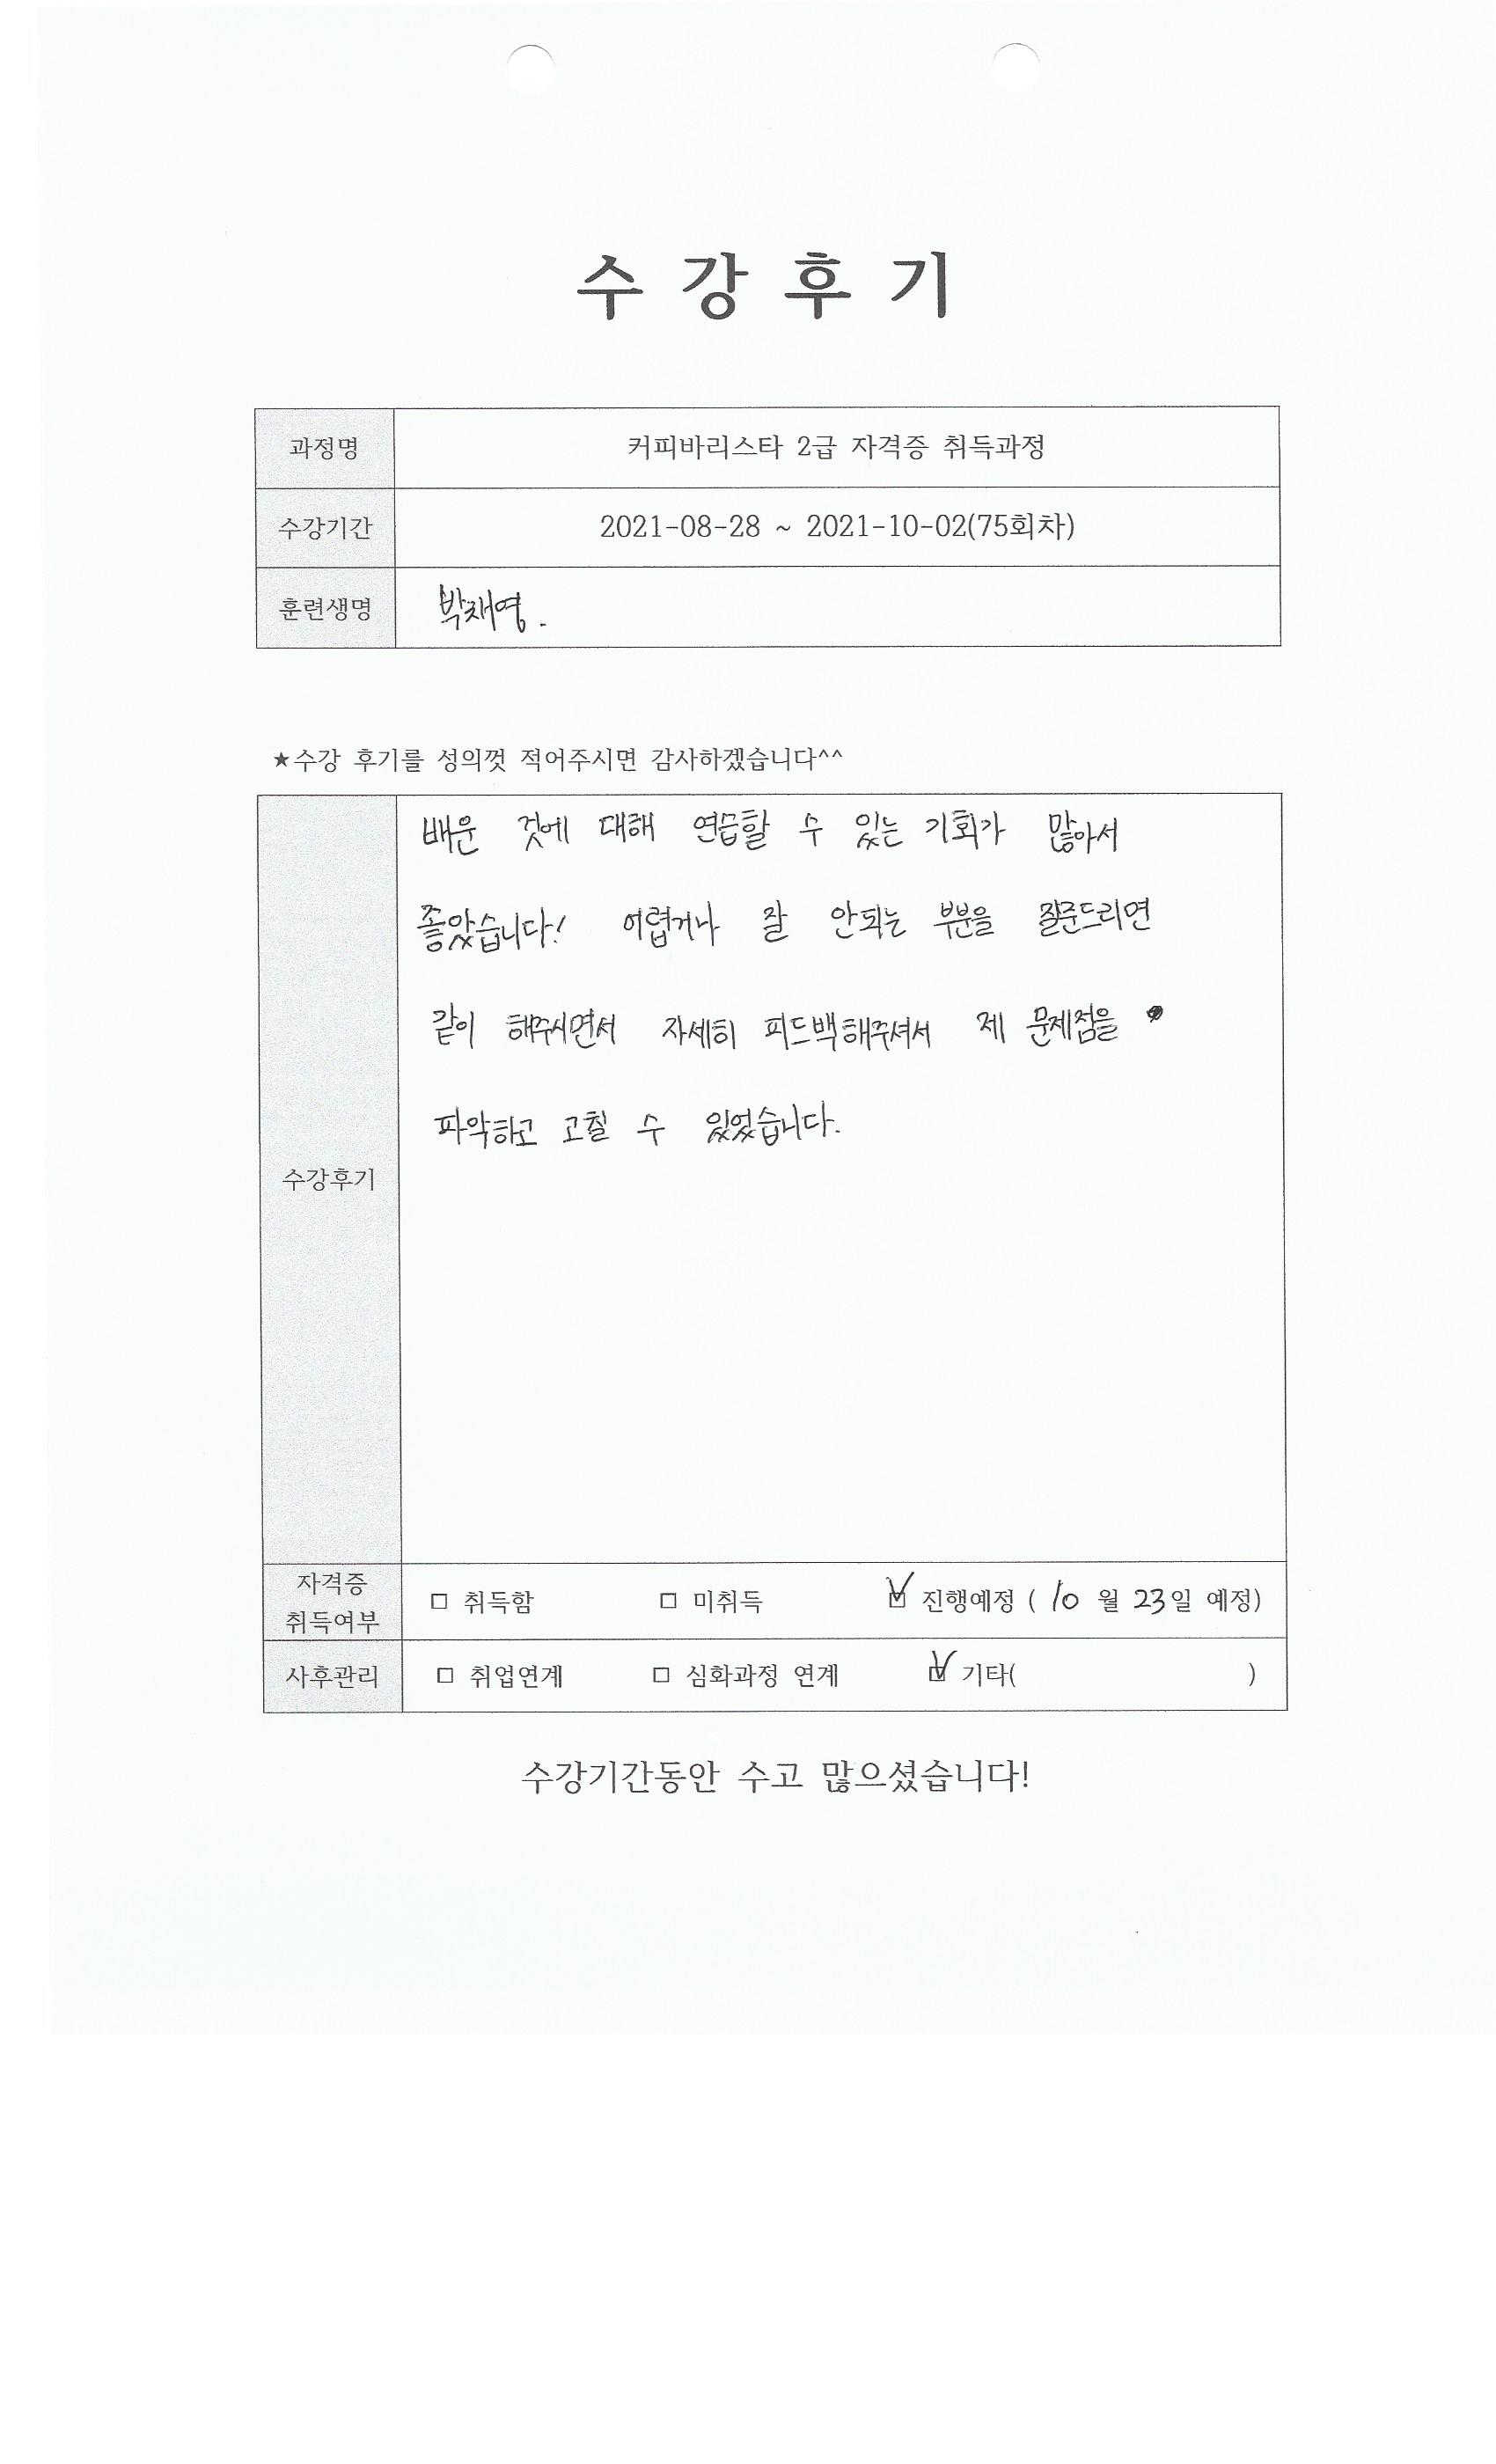 수 강 후 기
과정명 커피바리스타 2급 자격증 취득과정
수강기간 2021-08-28 ~ 2021-10-02(75회차)
훈련생명 박채영.
★수강 후기를 성의껏 적어주시면 감사하겠습니다^^
수강후기
배운 것에 대해 연습할 수 있는 기회가 많아서
좋았습니다! 어렵거나 잘 안되는 부분을 질문드리면
같이 해주시면서 자세히 피드백해주셔서 제 문제점을
파악하고 고칠 수 있었습니다.
자격증
취득여부
□ 취득함 □ 미취득 ☑ 진행예정 ( 10 월 23일 예정)
사후관리 □ 취업연계 □ 심화과정 연계 ☑ 기타( )
수강기간동안 수고 많으셨습니다!